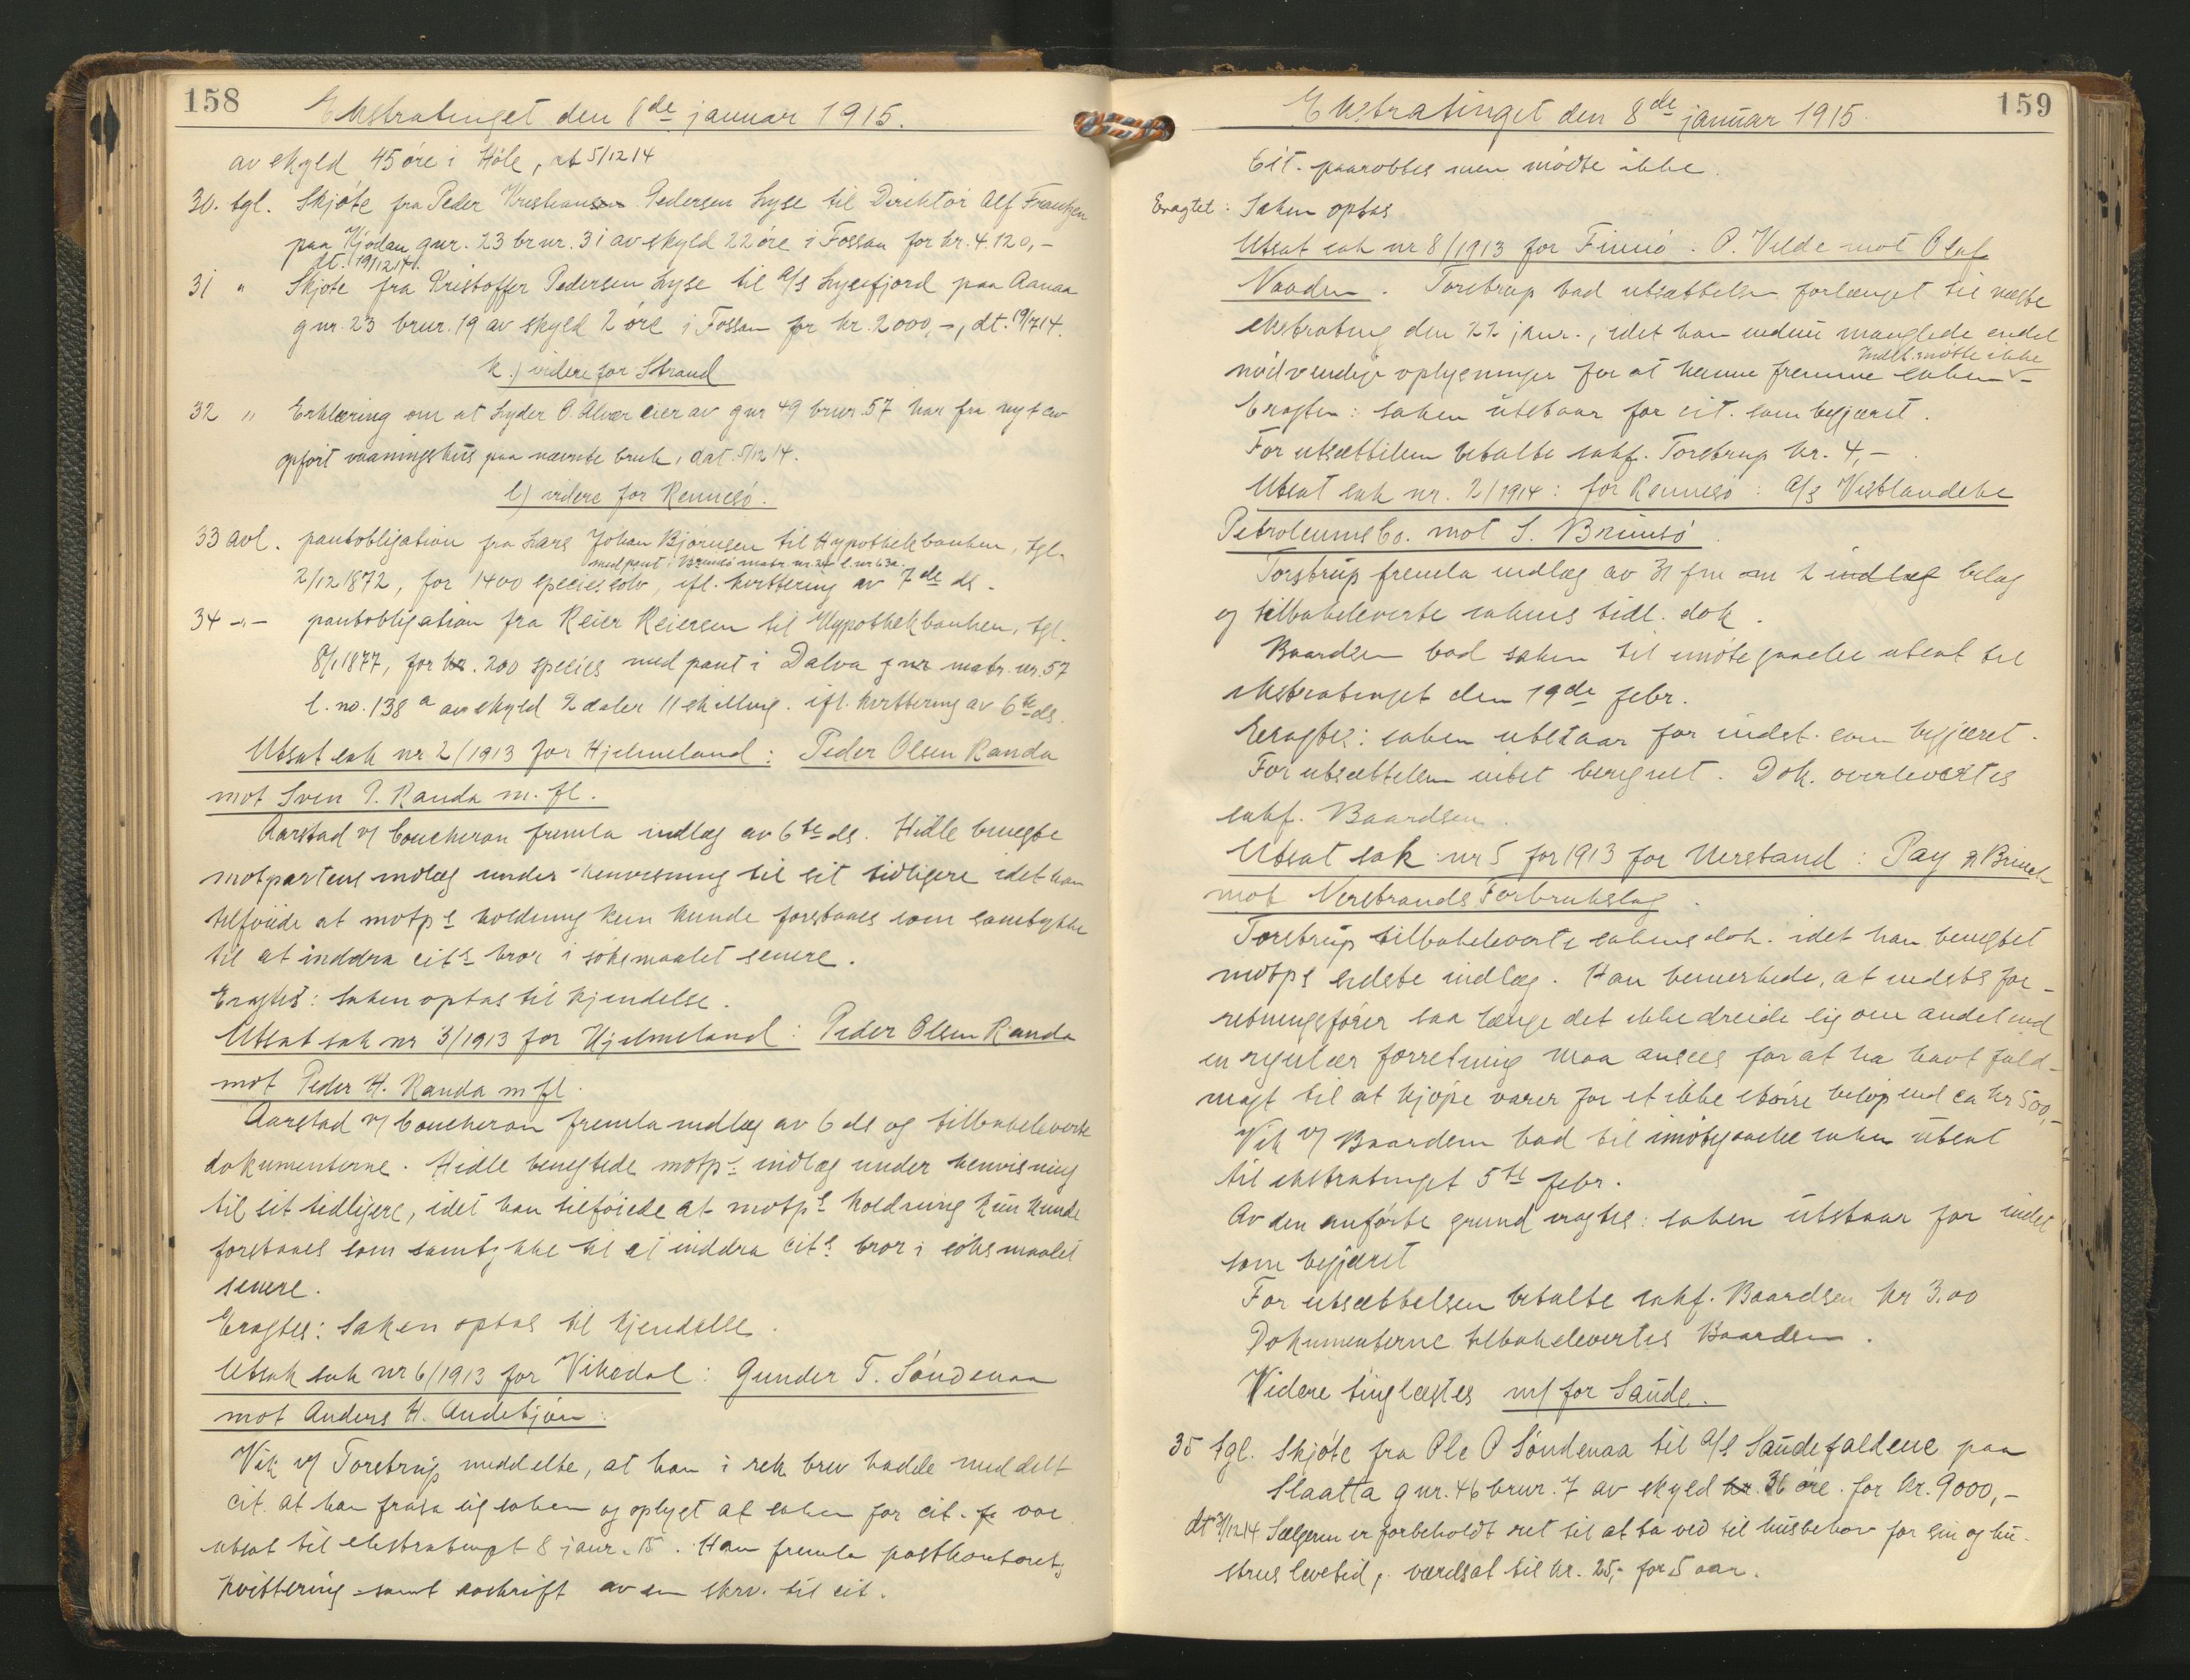 158
Ekstratinget den 8de januar 1915.
av skyld 45 øre i Høle, dt 5/12 14
30. tgl. Skjøte fra Peder Kristiansen Pedersen Lyse til Direktør Alf Frantzen
paa Kjodan gnr. 23 brnr. 31 av skyld 22 øre i Fossan for kr. 4.120,-
dt. 19/12 14.
31 " Skjøte fra Kristoffer Pedersen Lyse til a/s Lysefjord paa Aanaa
gnr. 23 brnr. 19 av skyld 2 øre i Fossan for kr. 2000,-, dt. 19/7 14.
k.) videre for Strand
32 " Erklæring om at Lyder O. Alvær eier av gnr 49 brnr. 57 har fra nyt av
opført vaaningshus paa nævnte bruk, dat. 5/12 14.
l) videre for Rennesø.
33 avl. pantobligation fra Lars Johan Bjørnsen til Hypothekbanken, tgl.
med pant i Brimsø matr. nr. 24 l. nr 63a.
2/12 1872, for 1400 species sølv, ifl. kvittering av 7de ds.
34 -"- pantobligation fra Reier Reiersen til Hypothekbanken, tgl.
8/1 1877, for kr. 200 species med pant i Dalva gnr matr. nr. 57
l. no. 138 a av skyld 2 daler 11 skilling. ifl. kvittering av 6te ds.
Utsat sak nr 2/1913 for Hjelmeland: Peder Olsen Randa
mot Sven P. Randa m. fl.
Aarstad v/ Coucheron fremla indlæg av 6te ds. Hidle benegte
motpartens indlæg under henvisning til sit tidligere idet han
tilføiede at motps holdning kun kunde forstaaes som samtykke
til at inddra cits bror i søksmaalet senere.
Eragtes: saken optas til kjendelse.
Utsat sak nr 3/1913 for Hjelmeland: Peder Olsen Randa
mot Peder H. Randa m fl.
Aarstad v/ Coucheron fremla indlæg av 6 ds og tilbakeleverte
dokumenterne. Hidle benegtede motps indlæg under henvisning
til sit tidligere, idet han tilføiede at motps holdning kun kunde
forstaaes som samtykke til at inddra cits bror i søksmaalet
senere.
Eragtes: Saken optas til kjendelse.
Utsat sak nr 6/1913 for Vikedal: Gunder T. Søndenaa
mot Anders H. Andebjøn:
Vik v/ Torstrup meddelte, at han i rek. brev hadde meddelt
cit. at han frasa sig saken og oplyst at saken for cit. fr var
utsat til ekstratinget 8 janr. 15. Han fremla postkontorets
kvittering samt avskrift av sin skrv. til cit.
159
Ekstratinget den 8de januar 1915.
Cit. paaroptes men møtte ikke.
Eragtet: Saken optas
Utsat sak nr 8/1913 for Finnø: O. Velde mot Olaf
Naaden. Torstrup bad utsættelsen forlænget til næste
ekstrating den 22 janr., idet han endnu manglede endel
Indst. møtte ikke
nødvendige oplysninger for at kunne fremme saken -
Eragtes: saken utstaar for cit. som begjæret.
For utsættelsen betalte sakf. Torstrup kr. 4,-
Utsat sak nr. 2/1914: for Rennesø: a/s Vestlandske
Petroleums Co. mot S. Brimsø.
Torstrup fremla indlæg av 31 fm om 2 indlæg bilag
og tilbakeleverte sakens tidl. dok.
Baardsen bad saken til imøtegaaelse utsat til
ekstratinget den 19de febr.
Eragtes: saken utstaar for indst. som begjæret.
For utsættelsen intet beregnet. Dok. overlevertes
sakf. Baardsen.
Utsat sak nr 5 for 1913 for Nerstrand: Pay & Brinck
mot Nerstrands Forbrukslag.
Torstrup tilbakeleverte sakens dok. idet han benegtet
motps sidste indlæg. Han bemerkede, at indsts for-
retningsfører saa længe det ikke dreide sig om andet end
en regulær forretning maa ansees for at ha havt fuld-
magt til at kjøpe varer for et ikke større beløp end ca kr 500,-
Vik v/ Baardsen bad til imøtegaaelse saken utsat
til ekstratinget 5te febr.
Av den anførte grund eragtes: saken utstaar for indst
som begjæret
For utsættelsen betalte sakf. Baardsen kr 3.00
Dokumenterne tilbakelevertes Baardsen.
Videre tinglæstes m/ for Saude.
35 tgl. Skjøte fra Ole O Søndenaa til a/s Saudefaldene paa
Slaatta gnr. 46 brnr. 7 av skyld kr. 36 øre. for kr. 9000,-
dt 31/12 14 Sælgeren er forbeholdt ret til at ta ved til husbehov for sin og hu-
strus levetid, værdsat til kr. 25,- for 5 aar.